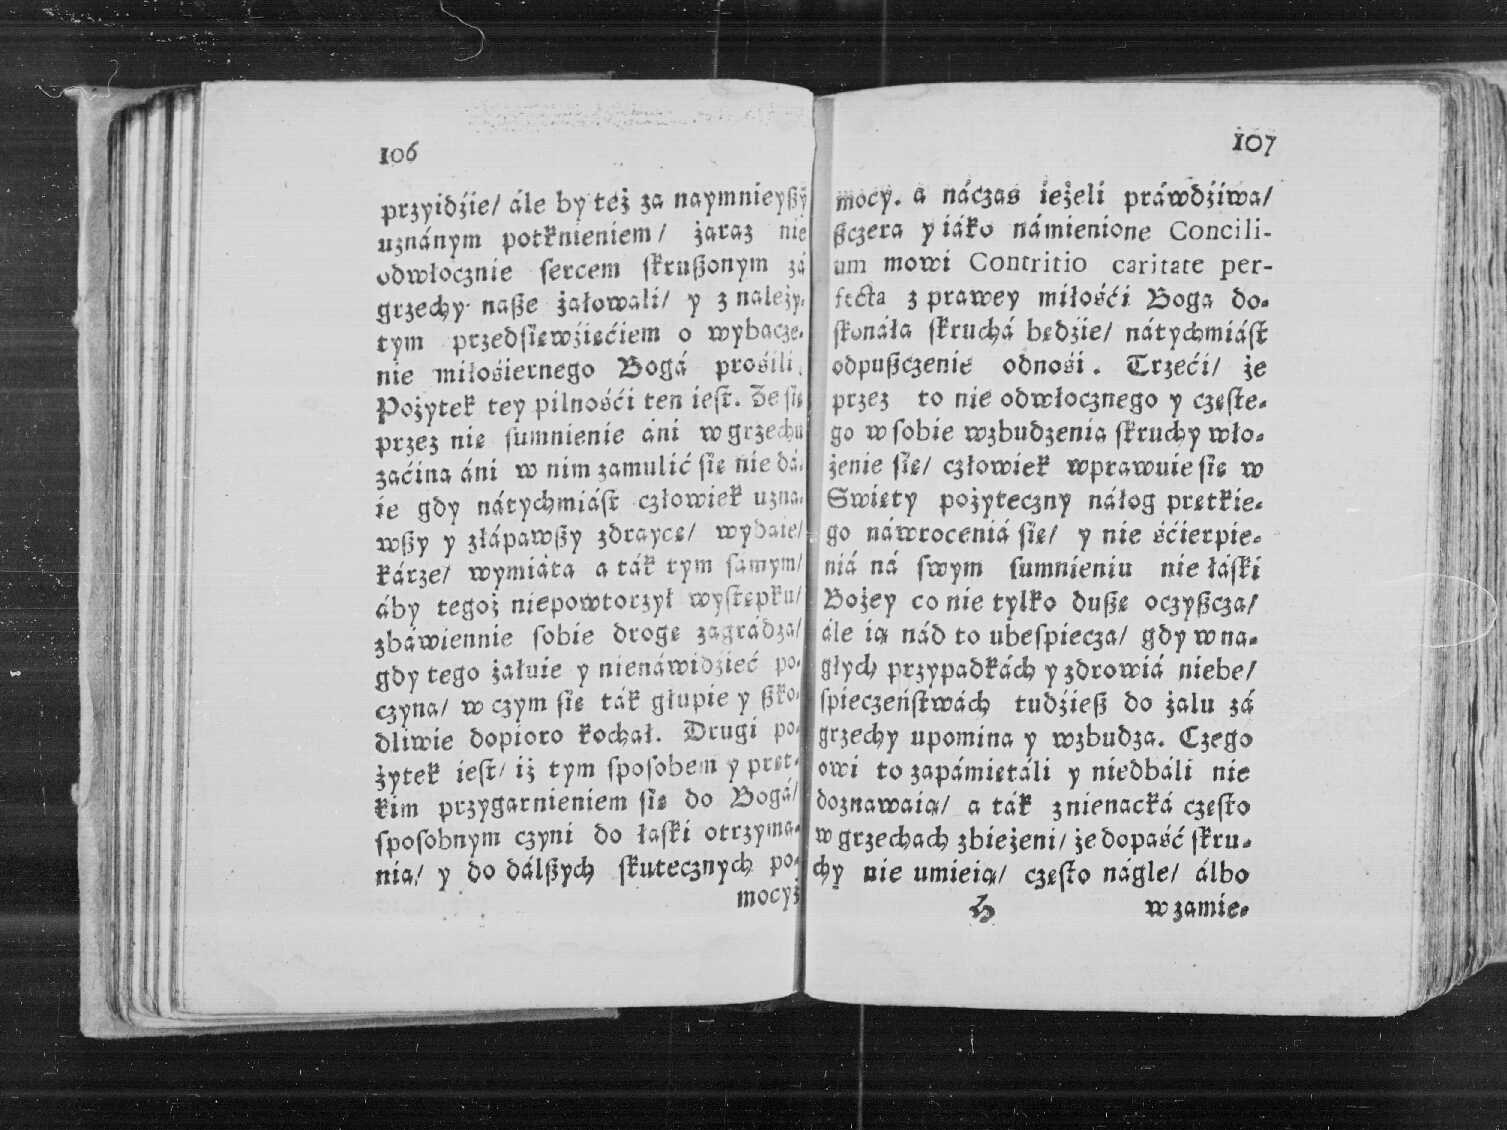 106
przyidźie/ ále by też za naymnieyßẏ
uznánym potknieniem/ żaraz nie
odwłocznie sercem skrußonym zá
grzechy naße żałowali/ y z należy-
tym przedsięwźięćiem o wybacze-
nie miłośiernego Bogá prośili.
Pożytek tey pilnośći ten iest. Że się
przez nię sumnienie áni w grzechu
zaćina áni w nim zamulić się nie dá-
ie gdy nátychmiást człowiek uzna-
wßy y złápawßy zdraycę/ wydaie/
kárze/ wymiáta a ták tym samym/
áby tegoż niepowtorzył występku/
zbáwiennie sobie drogę zagradza/
gdy tego żałuie y nienáwidźieć po-
czyna/ w czym się ták głupie y ßko-
dliwie dopioro kochał. Drugi po-
żytek iest/ iż tym sposobem y pręt-
kim przygarnieniem się do Bogá/
sposobnym czyni do łaski otrzyma-
nia/ y do dálßych skutecznych po-
mocyż
107
mocy. a náczas ieżeli práwdźiwa/
ßczera y iáko námienione Concili-
um mowi Contritio caritate per-
fecta z prawey miłośći Boga do-
skonáła skruchá będzie/ nátychmiást
odpußczenie odnośi. Trzeći/ że
przez to nie odwłocznego y częste-
go w sobie wzbudzenia skruchy wło-
żenie się/ człowiek wprawuie się w
Swięty pożyteczny náłog prętkie-
go náwroceniá się/ y nie śćierpie-
niá ná swym sumnieniu nie łáski
Bożey co nie tylko dußę oczyßcza/
ále ią nád to ubespiecza/ gdy w na-
głych przypadkách y zdrowiá niebe/
spieczeństwách tudźieß do żalu zá
grzechy upomina y wzbudza. Czego
owi to zapámiętáli y niedbáli nie
doznawaią/ a ták znienacká często
w grzechach zbieżeni/ że dopaść skru-
chy nie umieią/ często nágle/ álbo
H
w zamie-